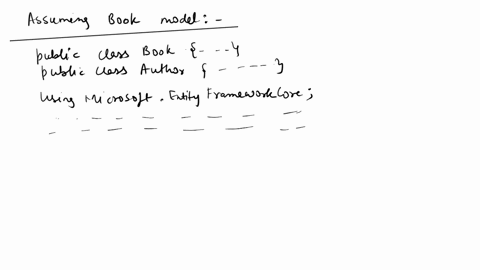 Assuming Book model:-
public class Book {- - -}
public class Author { - - - - - }
Using Microsoft.EntityFrameworkCore;